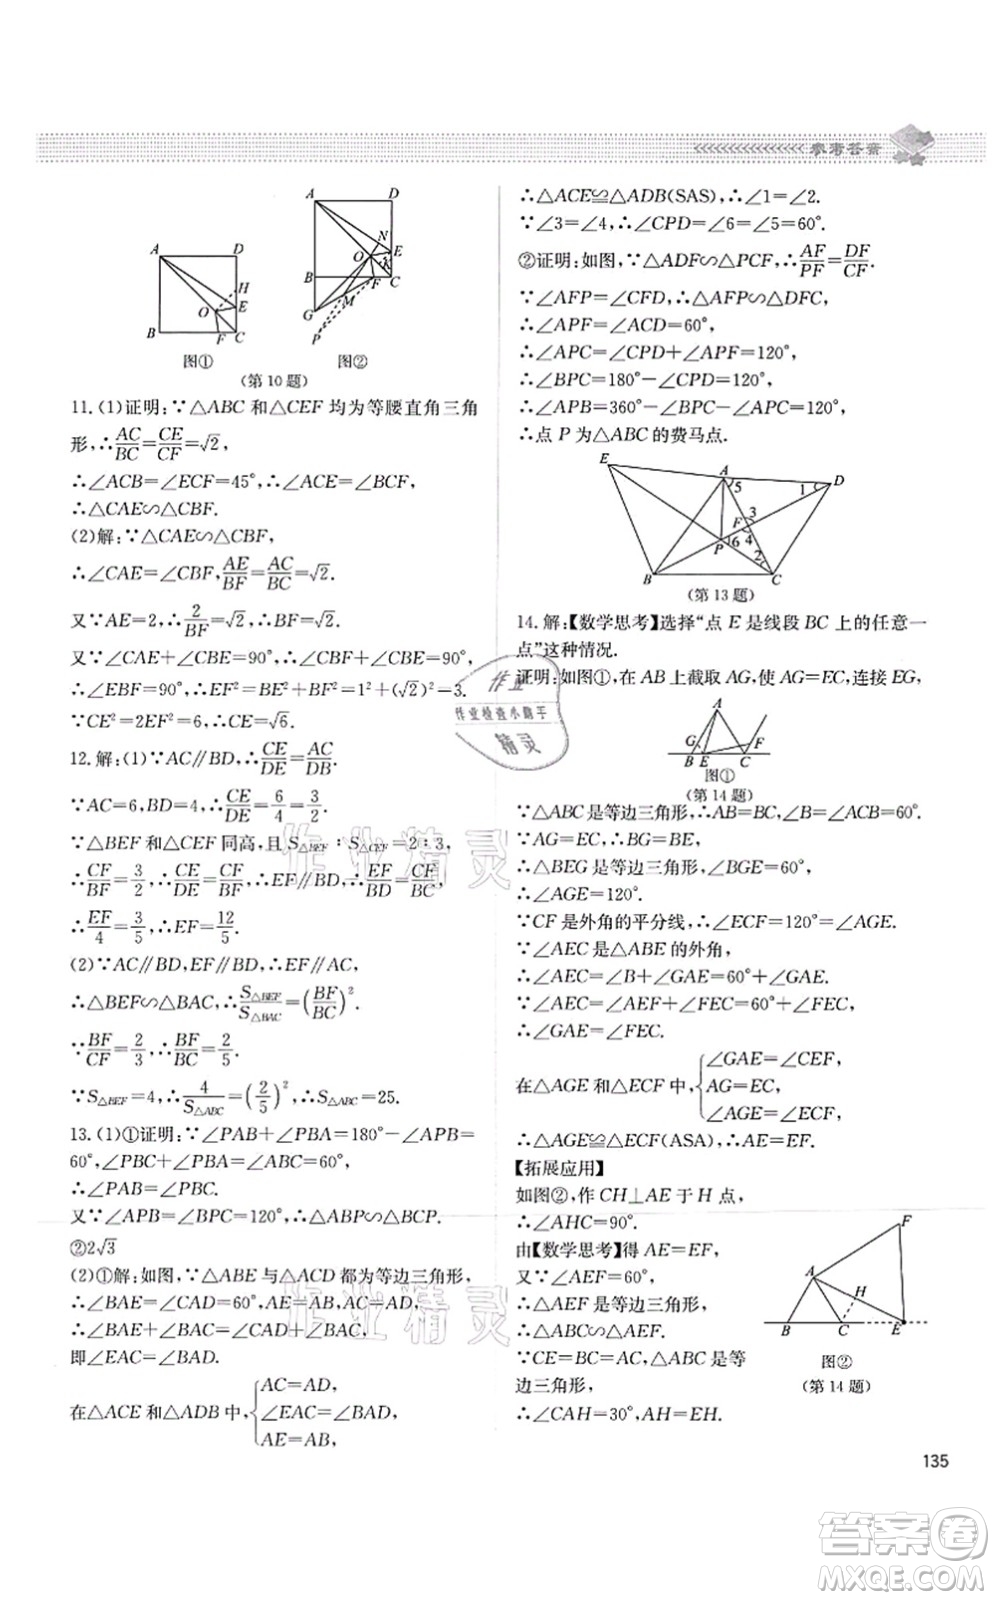 参考答案
A D H O E B F C
图①
A D N O E K B F C G M P
图②
(第10题)
11.(1)证明:∵△ABC 和△CEF 均为等腰直角三角
形,∴AC/BC=CE/CF=√2,
∴∠ACB=∠ECF=45°,∴∠ACE=∠BCF,
∴△CAE∽△CBF.
(2)解:∵△CAE∽△CBF,
∴∠CAE=∠CBF,AE/BF=AC/BC=√2.
又∵AE=2,∴2/BF=√2,∴BF=√2.
又∵∠CAE+∠CBE=90°,∴∠CBF+∠CBE=90°,
∴∠EBF=90°,∴EF²=BE²+BF²=1²+(√2)²=3.
∵CE²=2EF²=6,∴CE=√6.
12.解:(1)∵AC∥BD,∴CE/DE=AC/DB.
∵AC=6,BD=4,∴CE/DE=6/4=3/2.
∵△BEF 和△CEF 同高,且 S△BEF∶S△CEF=2∶3,
∴CF/BF=3/2,∴CE/DE=CF/BF,∴EF/BD=CF/BC,
∴EF/4=3/5,∴EF=12/5.
(2)∵AC∥BD,EF∥BD,∴EF∥AC,
∴△BEF∽△BAC,∴S△BEF/S△BAC=(BF/BC)².
∵BF/CF=2/3,∴BF/BC=2/5.
∵S△BEF=4,∴4/S△ABC=(2/5)²,∴S△ABC=25.
13.(1)①证明:∵∠PAB+∠PBA=180°−∠APB=
60°,∠PBC+∠PBA=∠ABC=60°,
∴∠PAB=∠PBC.
又∵∠APB=∠BPC=120°,∴△ABP∽△BCP.
②2√3
(2)①解:如图,∵△ABE 与△ACD 都为等边三角形,
∴∠BAE=∠CAD=60°,AE=AB,AC=AD,
∴∠BAE+∠BAC=∠CAD+∠BAC,
即∠EAC=∠BAD.
在△ACE 和△ADB 中,{AC=AD,
∠EAC=∠BAD,
AE=AB,
∴△ACE≌△ADB(SAS),∴∠1=∠2.
∵∠3=∠4,∴∠CPD=∠6=∠5=60°.
②证明:如图,∵△ADF∽△PCF,∴AF/PF=DF/CF.
∵∠AFP=∠CFD,∴△AFP∽△DFC,
∴∠APF=∠ACD=60°,
∴∠APC=∠CPD+∠APF=120°,
∴∠BPC=180°−∠6=120°,
∴∠APB=360°−∠BPC−∠APC=120°,
∴点 P 为△ABC 的费马点.
E A 5 1 D F 3 4 P 6 2 B C
(第13题)
14.解:【数学思考】选择“点 E 是线段 BC 上的任意一
点”这种情况.
证明:如图①,在 AB 上截取 AG,使 AG=EC,连接 EG,
A G F B E C
图①
(第14题)
∵△ABC 是等边三角形,∴AB=BC,∠B=∠ACB=60°.
∵AG=EC,∴BG=BE,
∴△BEG 是等边三角形,∠BGE=60°,
∴∠AGE=120°.
∵CF 是外角的平分线,∴∠ECF=120°=∠AGE.
∵∠AEC 是△ABE 的外角,
∴∠AEC=∠B+∠GAE=60°+∠GAE.
∵∠AEC=∠AEF+∠FEC=60°+∠FEC,
∴∠GAE=∠FEC.
在△AGE 和△ECF 中,{∠GAE=∠CEF,
AG=EC,
∠AGE=∠ECF,
∴△AGE≌△ECF(ASA),∴AE=EF.
【拓展应用】
如图②,作 CH⊥AE 于 H 点,
∴∠AHC=90°.
由【数学思考】得 AE=EF,
又∵∠AEF=60°,
∴△AEF 是等边三角形,
∴△ABC∽△AEF.
∵CE=BC=AC,△ABC 是等
边三角形,
∴∠CAH=30°,AH=EH.
F A H B C E
图②
(第14题)
作业
作业检查小助手
精灵
作业精灵
作业精灵
135
答案圈
MXQE.COM